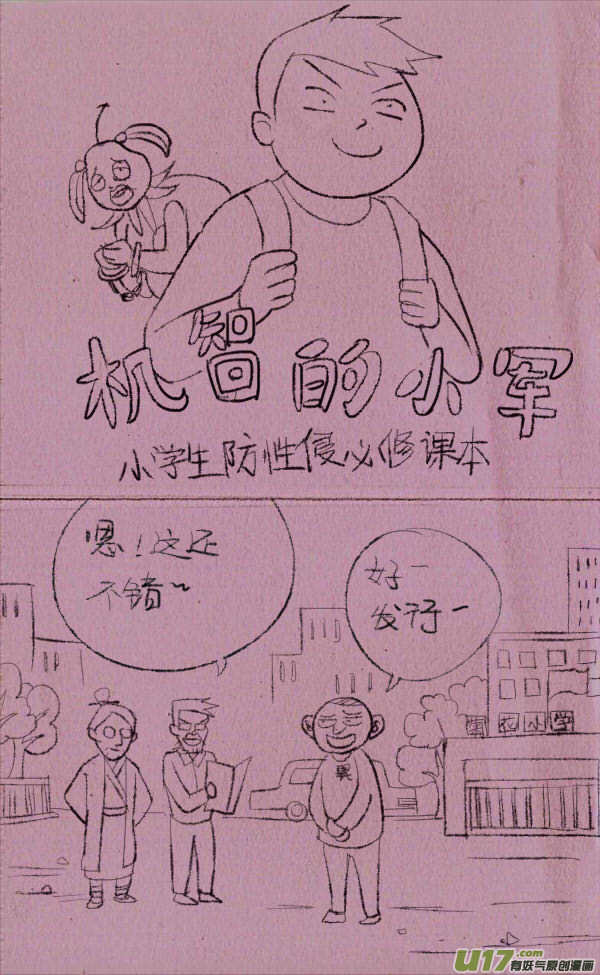 机智的小军
小学生防性侵必修课本
嗯！这还
不错~
好一
发行一
花小学
U17.com
有妖气原创漫画